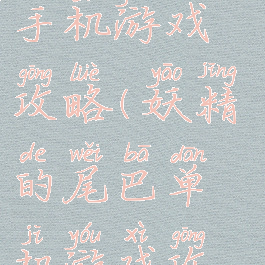 手机游戏
gōng lüè yāo jīng
攻略(妖精
de wěi bā dān
的尾巴单
jī yóu xì gōng
机游戏攻